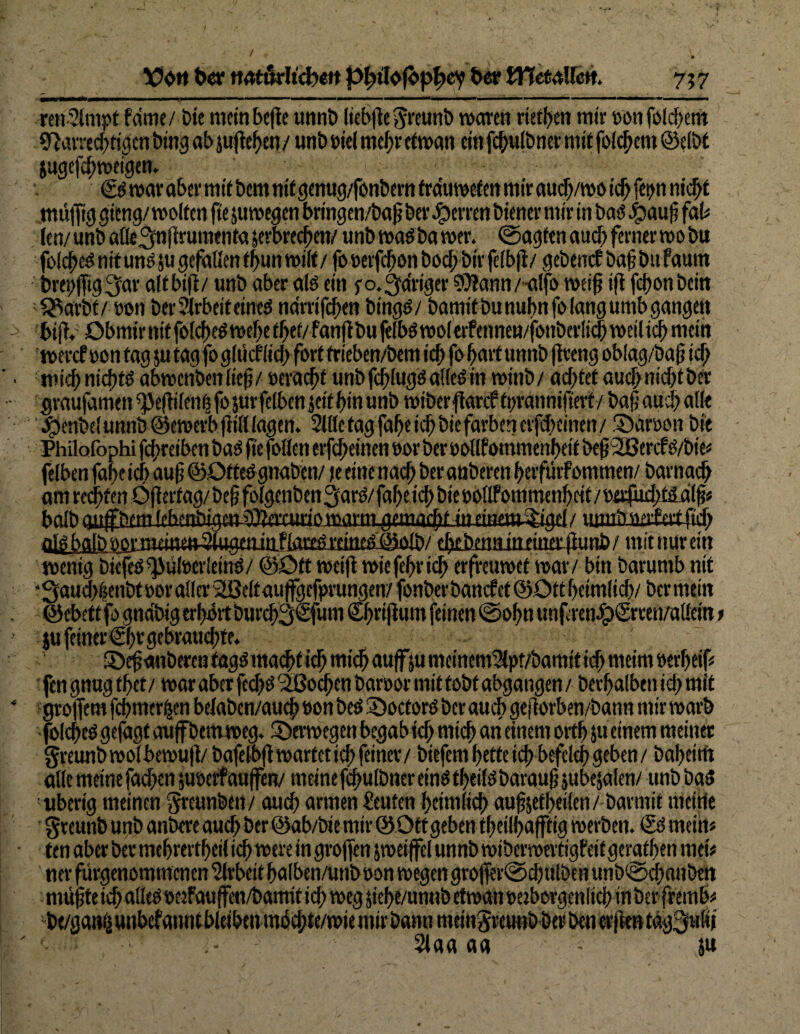 Von der natürlichen Philosophey der Metallen. 737
ren Ampt käme/ die mein beste unnd liebste Freund waren riethen mir von solchem
Narrechtigen ding ab zustehen/ und viel mehr etwan ein schuldner mit solchem Geldt
zugeschweigen.
Es war aber mit dem nit genug/sondern träuweten mir auch/wo ich seyn nicht
müssig gieng/ wolten sie zuwegen bringen/daß der Herren diener mir in das Hauß fal-
len/ und alle Instrumenta zerbrechen/ und was da wer. Sagten auch ferner wo du
solches nit uns zu gefallen thun wilt/ so verschon doch dir selbst/ gedenck daß du kaum
dreyssig Jar alt bist/ und aber als ein 50. Järiger Mann/ also weiß ist schon dein
Bardt/ von der Arbeit eines närrischen dings/ damit du nuhn so lang umb gangen
bist. Ob mir nit solches wehe thet/ kanst du selbs wol erkennen/sonderlich weil ich mein
werck von tag zu tag so glücklich fort trieben/dem ich so hart unnd streng oblag/daß ich
mich nichts abwenden ließ/ veracht und schlugs alles in wind/ achtet auch nicht der
grausamen Pestilentz so zur selben zeit hin und wider starck tyrannisiert/ daß auch alle
Hendel unnd Gewerb still lagen. Alle tag sahe ich die farben erscheinen/ Darvon die
Philosophi schreiben das sie sollen erscheinen vor der vollkommenheit deß Wercks/die-
selben sahe ich auß Gottes gnaden/ je eine nach der anderen herfürkommen/ darnach
am rechten Ostertag/ deß folgenden Jars/ sahe ich die vollkommenheit/ versuchts alß-
bald auff dem lebendigen Mercurio warm gemacht in einem Tigel/ unnd verkert sich
als bald vor meinen Augen in klares reines Gold/ ehe denn in einer stund/ mit nur ein
wenig dieses Pülverleins/ Gott weißt wie sehr ich erfreuwet war/ bin darumb nit
Jauchtzendt vor aller Welt auffgesprungen/ sonder dancket Gott heimlich/ der mein
Gebett so gnädig erhört durch Jesum Christum seinen Sohn unseren Herren/allein
zu seiner Ehr gebrauchte.
Deß anderen tags macht ich mich auff zu meinem Apt/damit ich meim verheis-
sen gnug thet/ war aber sechs Wochen darvor mit todt abgangen/ derhalben ich mit
grossem schmertzen beladen/auch von des Doctors der auch gestorben/dann mir ward
solches gesagt auff dem weg. Derwegen begab ich mich an einem orth zu einem meiner
Freund wol bewust/ daselbst wartet ich seiner/ diesem hette ich befelch geben/ daheim
alle meine sachen zuverkauffen/ meine schuldner eins theils darauß zubezalen/ und das
uberig meinen Freunden/ auch armen Leuten heimlich außzetheilen/ darmit meine
Freund und andere auch der Gab/die mir Gott geben theilhafftig werden. Es mein-
ten aber der mehrertheil ich were in grossen zweiffel unnd widerwertigkeit gerathen mei-
ner fürgenommenen Arbeit halben/und von wegen grosser Schulden und Schanden
müßte ich alles verkauffen/damit ich weg ziehe/unnd etwan verborgenlich in der fremb-
de/gantz unbekannt bleiben möchte/wie mir dann mein Freund der den ersten tag Julij
Aaa aa zu